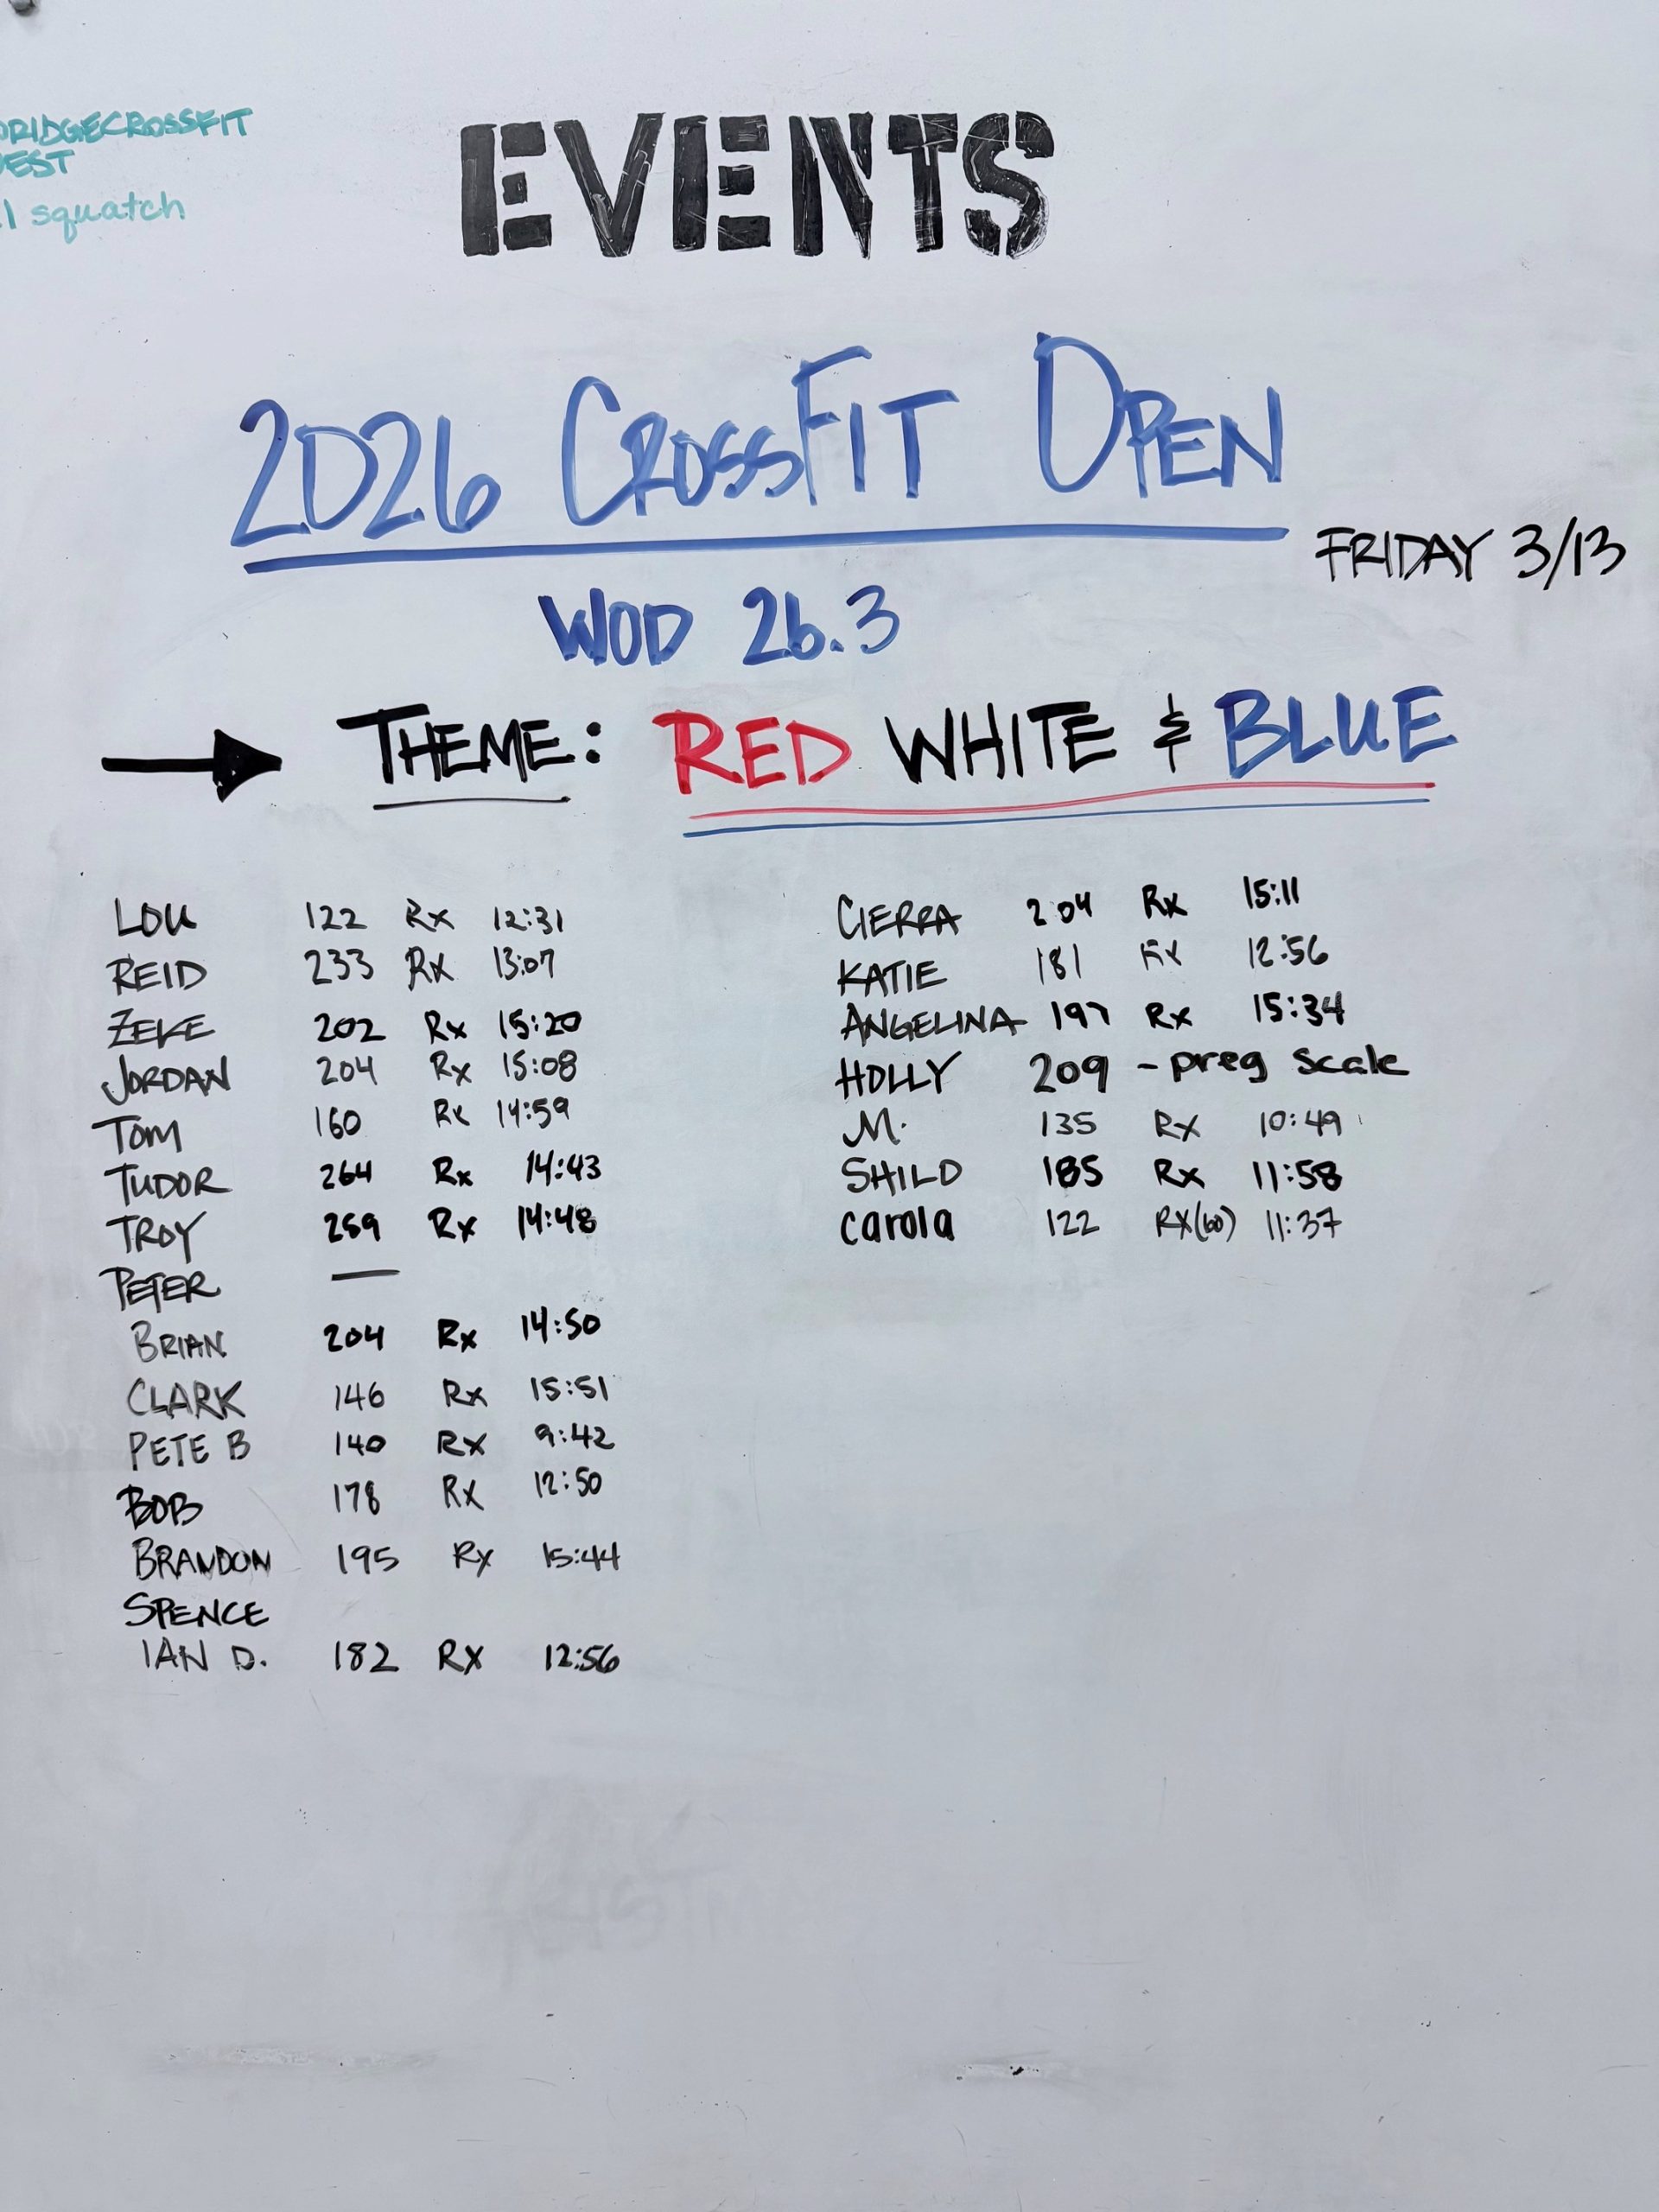 EVENTS
DRIDGECROSSFIT
squatch
2026 CROSSFIT OPEN
FRIDAY 3/13
WOD 26.3
THEME: RED WHITE & BLUE
LOU 122 Rx 12:31
REID 233 Rx 13:07
ZEKE 202 Rx 15:20
JORDAN 204 Rx 15:08
TOM 160 Rx 14:59
TUDOR 264 Rx 14:43
TROY 259 Rx 14:48
PETER —
BRIAN 204 Rx 14:50
CLARK 146 Rx 15:51
PETE B 140 Rx 9:42
BOB 178 Rx 12:50
BRANDON 195 Rx 15:44
SPENCE
IAN D. 182 Rx 12:56
CIERRA 204 Rx 15:11
KATIE 181 Rx 12:56
ANGELINA 197 Rx 15:34
HOLLY 209 - preg scale
M. 135 Rx 10:49
SHILO 185 Rx 11:58
carola 122 RX(60) 11:37